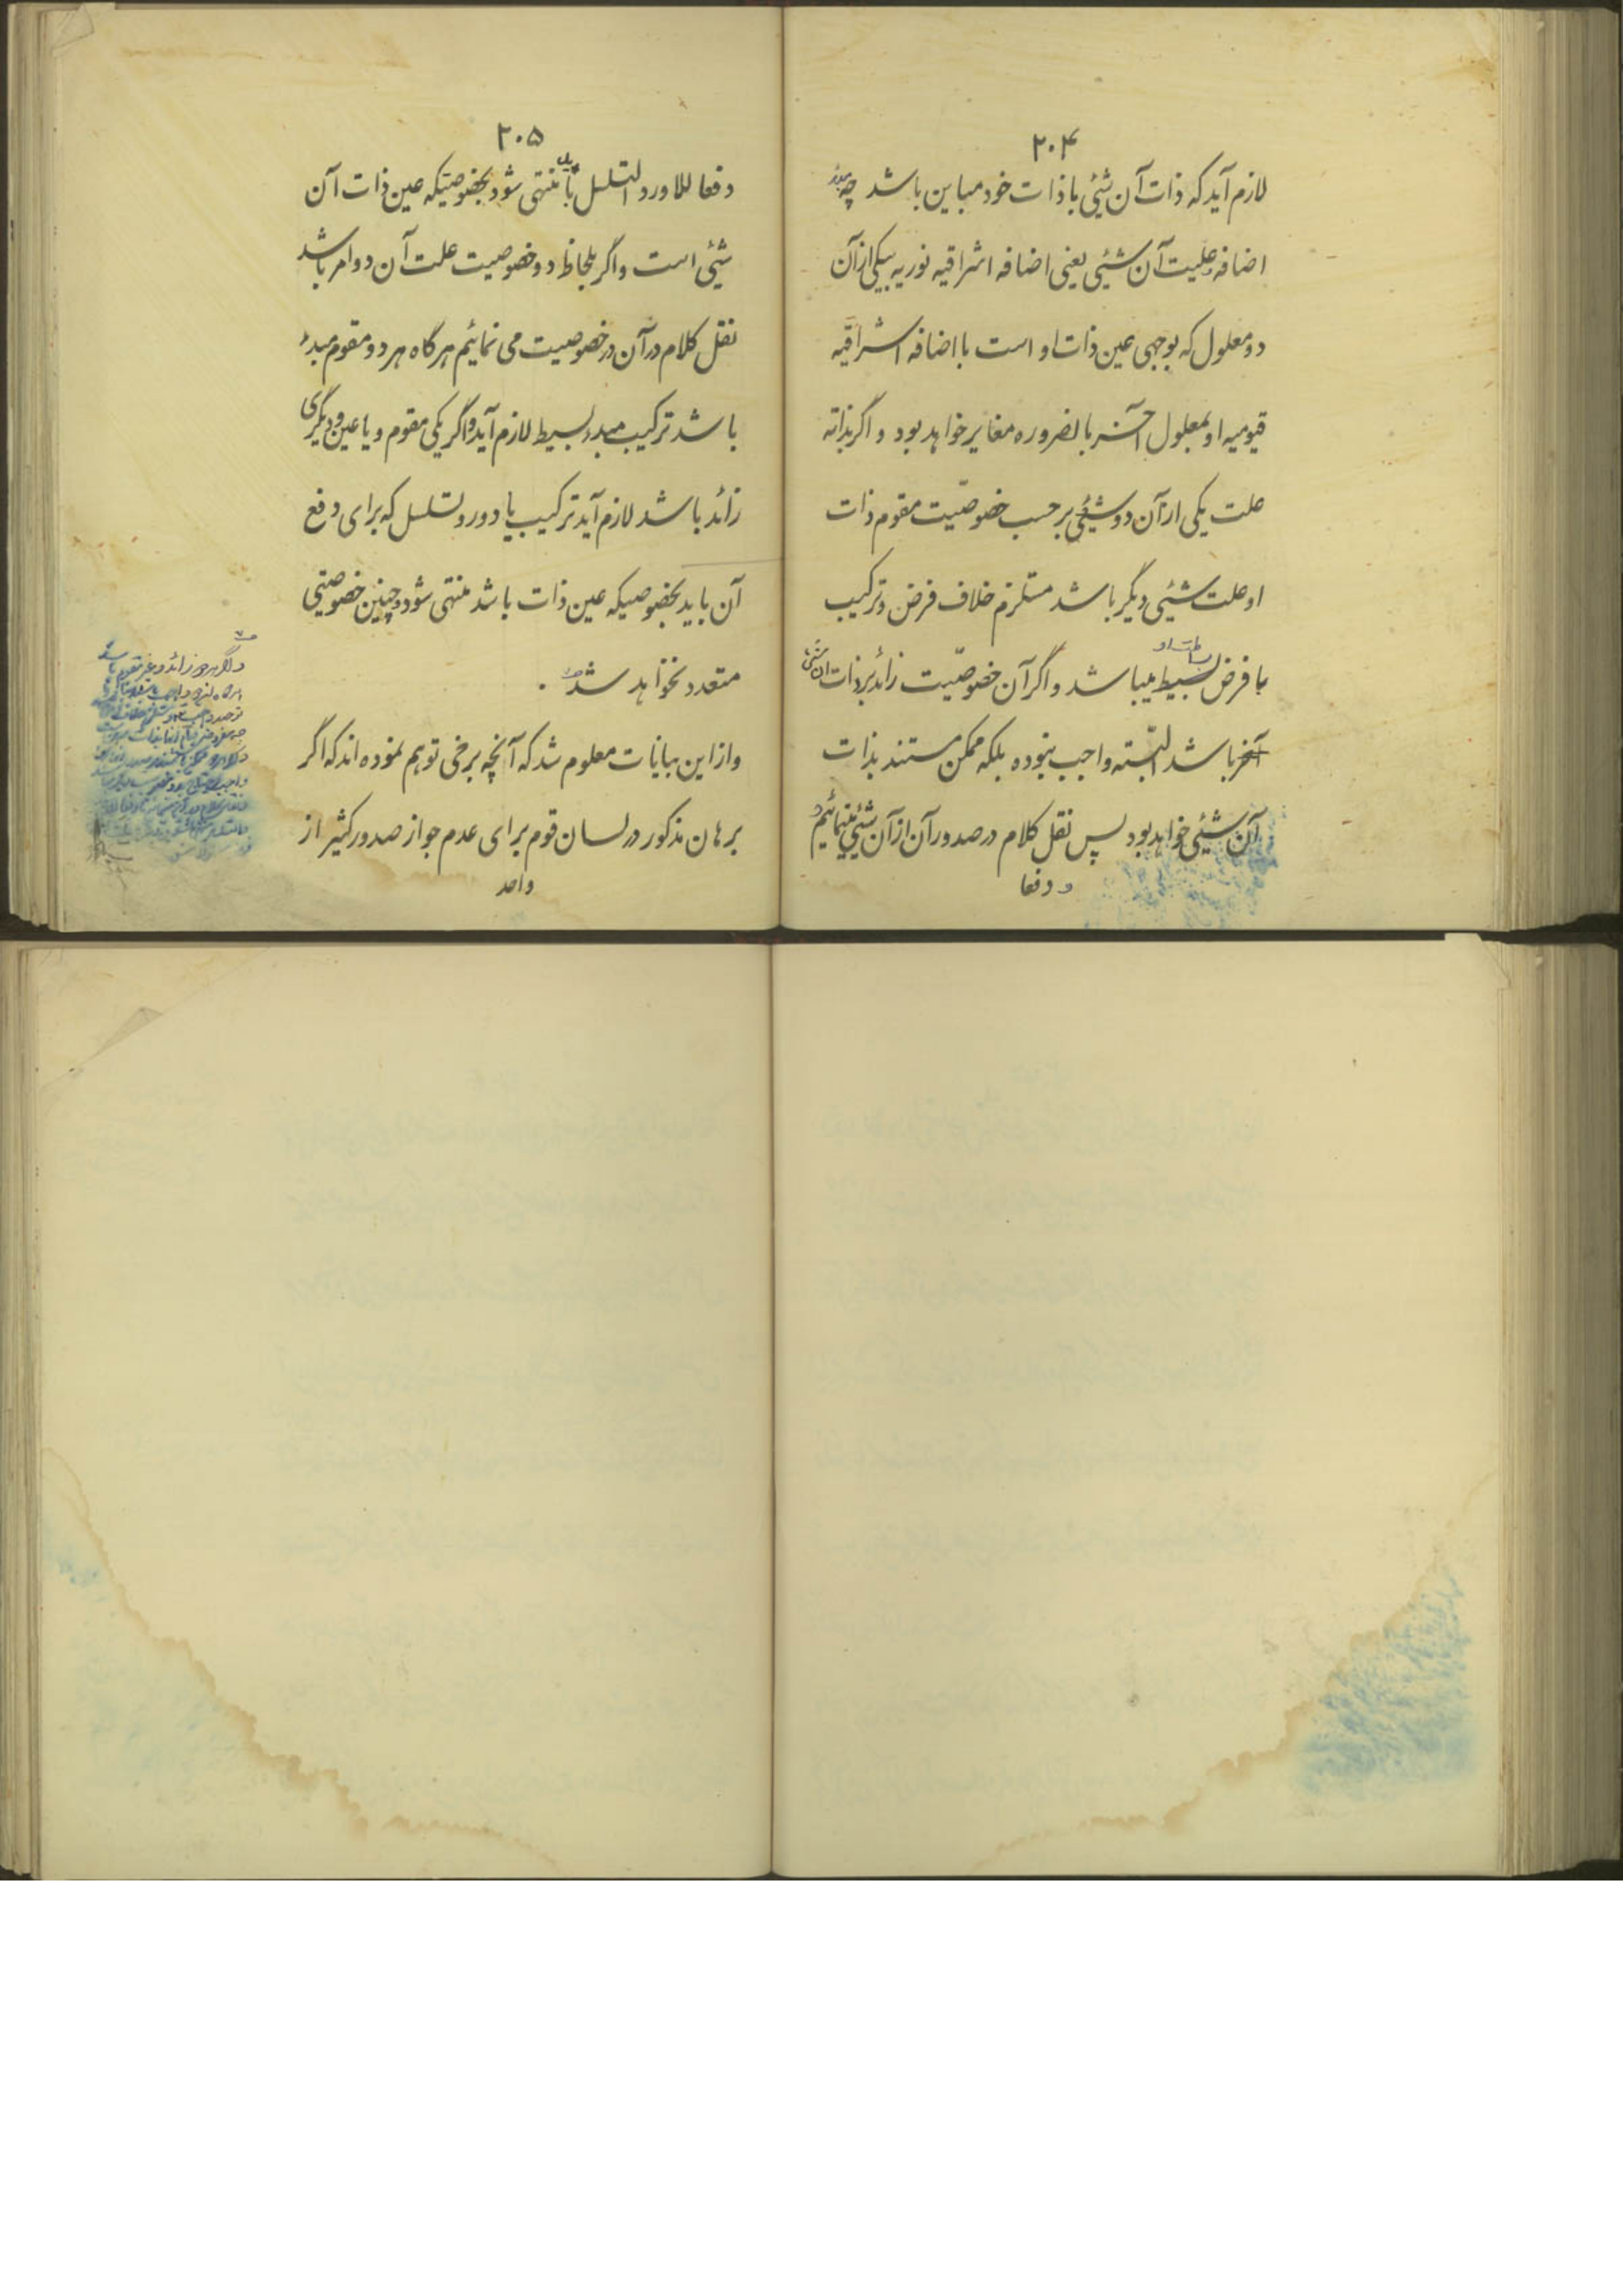 ۲۰۴
لازم آید که ذات آن شیئی با ذات خود مباین باشد چه
اضافه علیت آن شیئی یعنی اضافه اشراقیه نوریه بیکی از آن
دو معلول که بوجهی عین ذات او است با اضافه اشراقیه
قیومیه او بمعلول آخر بالضروره مغایر خواهد بود و اگر بذاته
علت یکی از آن دو شیئی بر حسب خصوصیّت مقوم ذات
او علت شیئی دیگر باشد مستلزم خلاف فرض و ترکیب
با فرض بسیط میباشد و اگر آن خصوصیّت زائد بر ذات ان شیئی
آخر باشد البتّه واجب نبوده بلکه ممکن مستند بذات
آن شیئی خواهد بود پس نقل کلام در صدور آن از آن شیئی مینمائیم
و دفعا
۲۰۵
دفعا للدور و التسلسل باید منتهی شود بخصوصیتیکه عین ذات آن
شیئی است و اگر بلحاظ دو خصوصیت علت آن دو امر باشد
نقل کلام در آن دو خصوصیت می نمائیم هر گاه هر دو مقوم مبدء
باشد ترکیب مبدء بسیط لازم آید و اگر یکی مقوم و یا عین و دیگری
زائد باشد لازم آید ترکیب یا دور و تسلسل که برای دفع
آن باید بخصوصیتیکه عین ذات باشد منتهی شود و چنین خصوصیتی
متعدد نخواهد شد
و از این بیانات معلوم شد که آنچه برخی توهم نموده اند که اگر
برهان مذکور در لسان قوم برای عدم جواز صدور کثیر از
واحد
و اگر هر دو زائد و غیر مقوم باشد